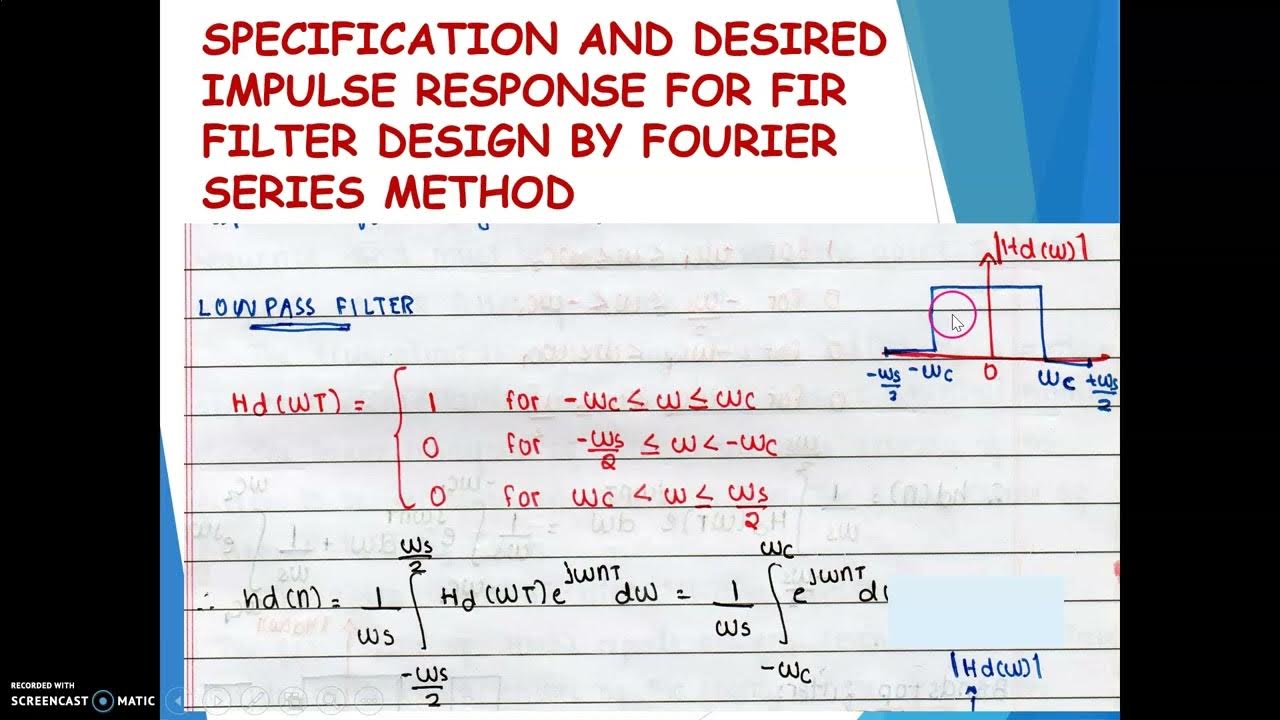 SPECIFICATION AND DESIRED
IMPULSE RESPONSE FOR FIR
FILTER DESIGN BY FOURIER
SERIES METHOD
|Hd(ω)|
LOWPASS FILTER
-ωs/2 -ωc 0 ωc +ωs/2
Hd(ωT) = { 1 for -ωc ≤ ω ≤ ωc
0 for -ωs/2 ≤ ω < -ωc
0 for ωc < ω ≤ ωs/2
∴ hd(n) = 1/ωs ∫_{-ωs/2}^{ωs/2} Hd(ωT) e^{jωnT} dω = 1/ωs ∫_{-ωc}^{ωc} e^{jωnT} d
|Hd(ω)|
RECORDED WITH
SCREENCAST MATIC